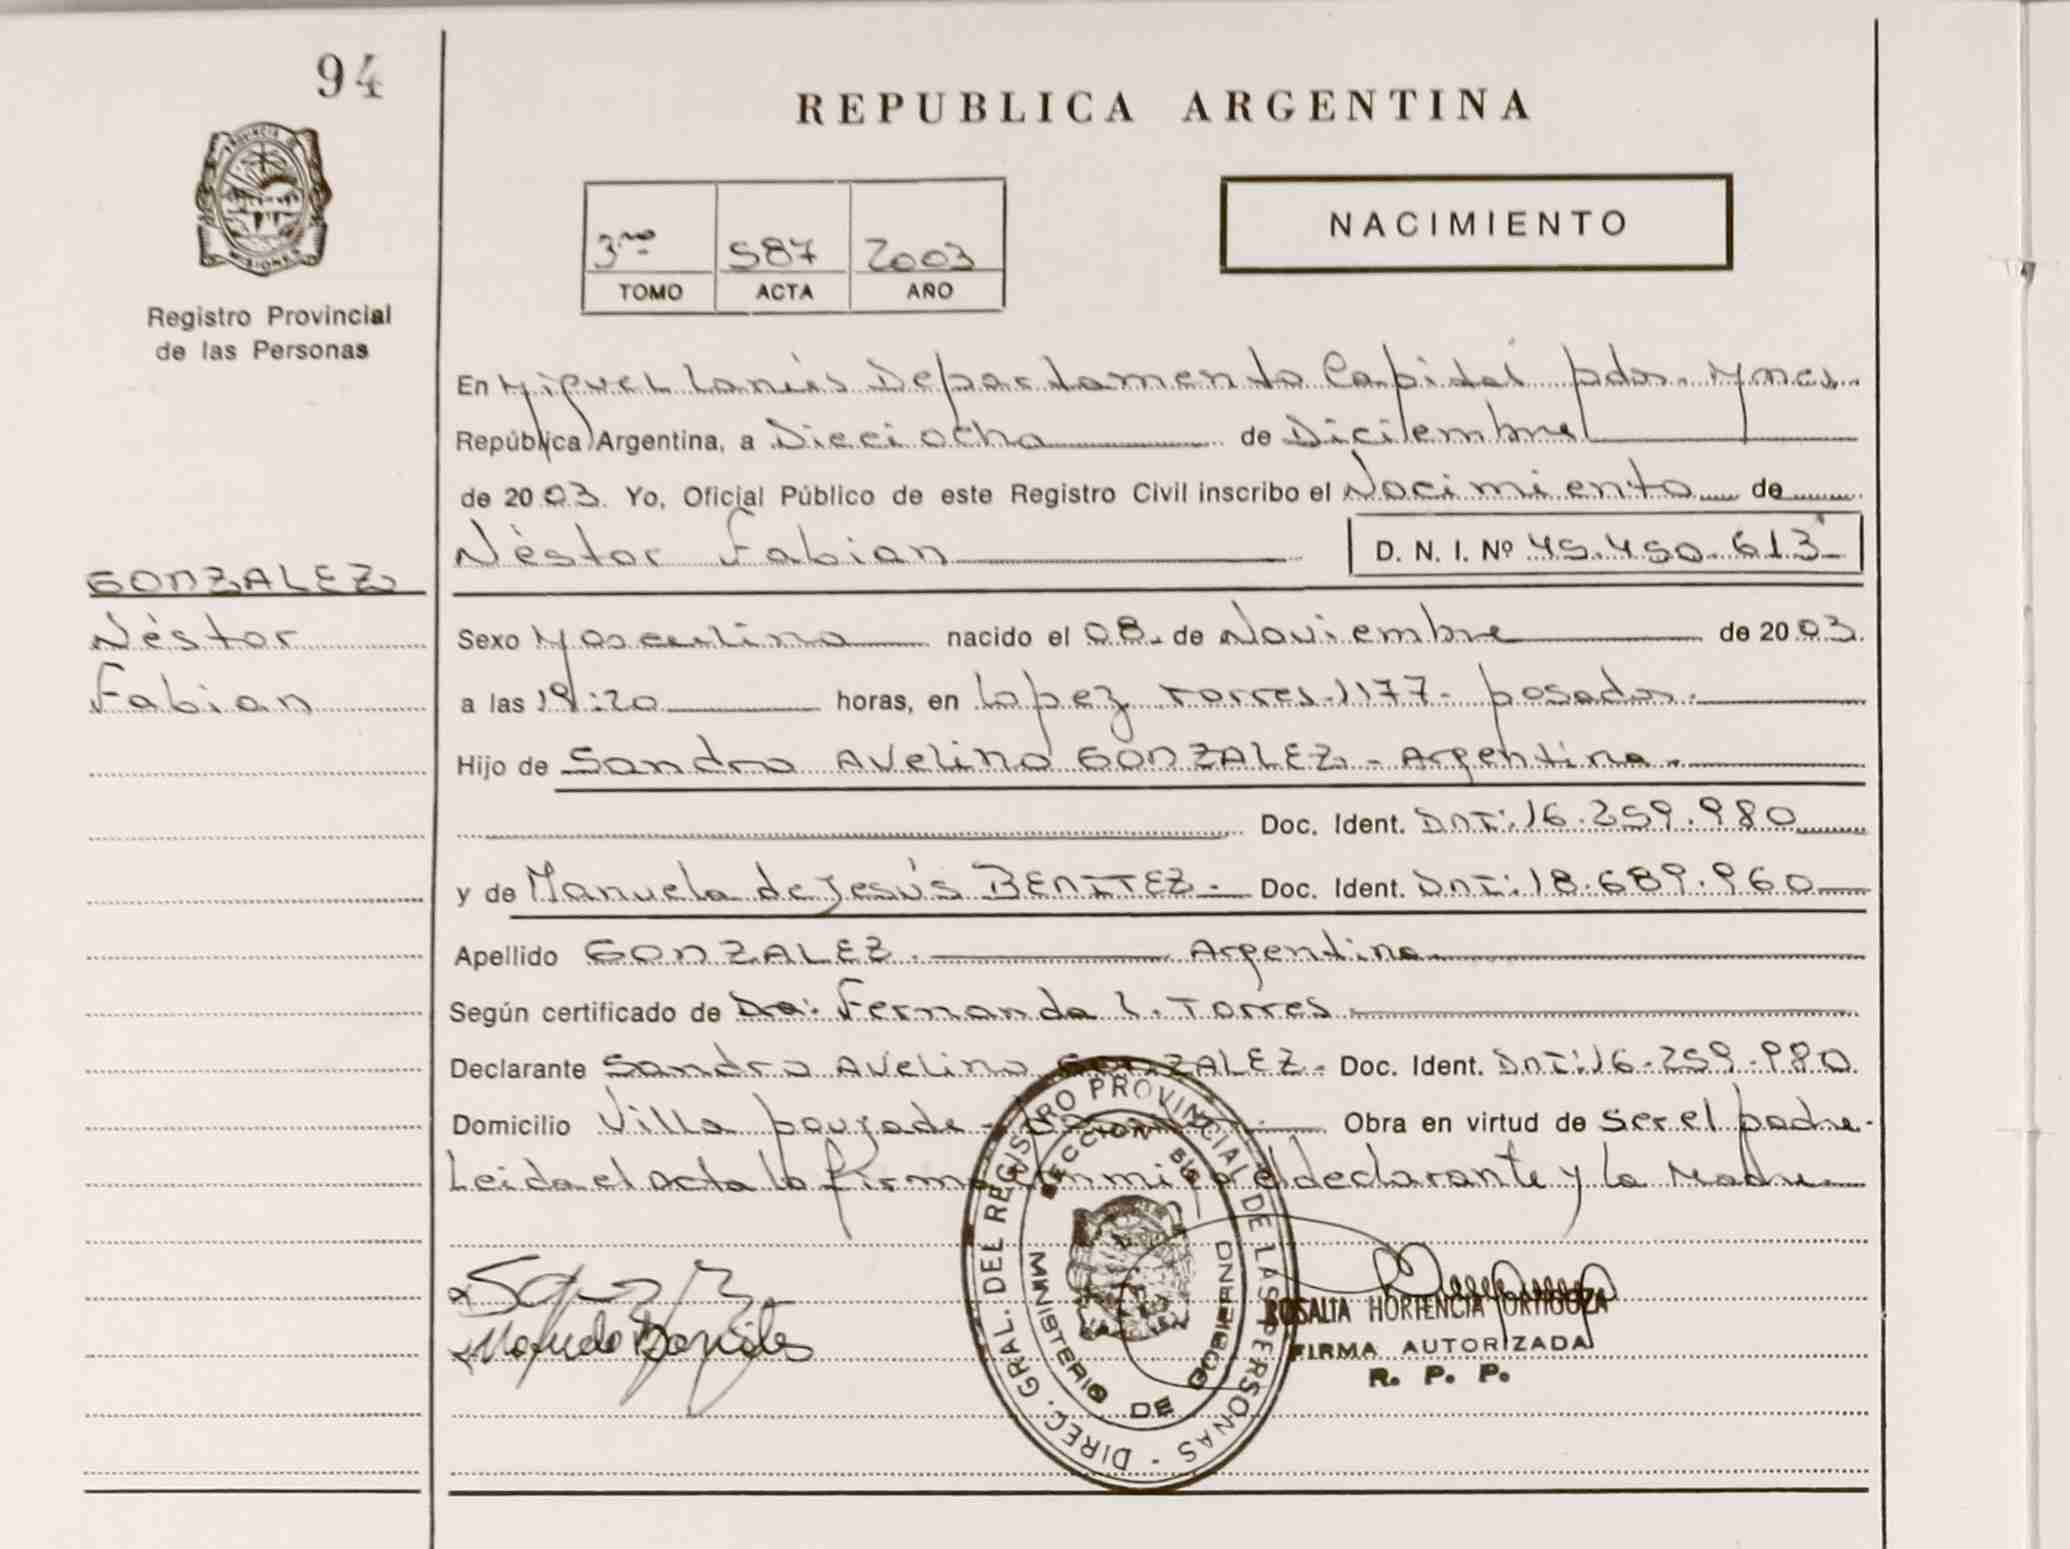 94
PROVINCIA
MISIONES
Registro Provincial
de las Personas
REPUBLICA ARGENTINA
3ro 587 2003
TOMO ACTA AÑO
NACIMIENTO
En Miguel Lanús Departamento Capital pdas. Mnes.
República Argentina, a Dieciocho de Diciembre
de 2003. Yo, Oficial Público de este Registro Civil inscribo el Nacimiento de
Néstor Fabian D. N. I. Nº 45.450.613
GONZALEZ
Néstor
Fabian
Sexo Masculino nacido el 08. de Noviembre de 2003.
a las 19:20 horas, en Lopez Torres-1177- posadas.
Hijo de Sandro Avelino GONZALEZ - Argentina.
Doc. Ident. DNI: 16.259.980
y de Manuela de Jesús BENITEZ - Doc. Ident. DNI: 18.689.960
Apellido GONZALEZ. Argentina.
Según certificado de Dra: Fernanda L. Torres
Declarante Sandro Avelino GONZALEZ - Doc. Ident. DNI: 16.259.980.
Domicilio Villa poujade - Obra en virtud de ser el padre.
Leida el acta la firma el declarante y la Madre
DIREC. GRAL. DEL REGISTRO PROVINCIAL DE LAS PERSONAS -
MINISTERIO DE GOBIERNO
ROSALIA HORTENCIA ORTIGOZA
FIRMA AUTORIZADA
R. P. P.